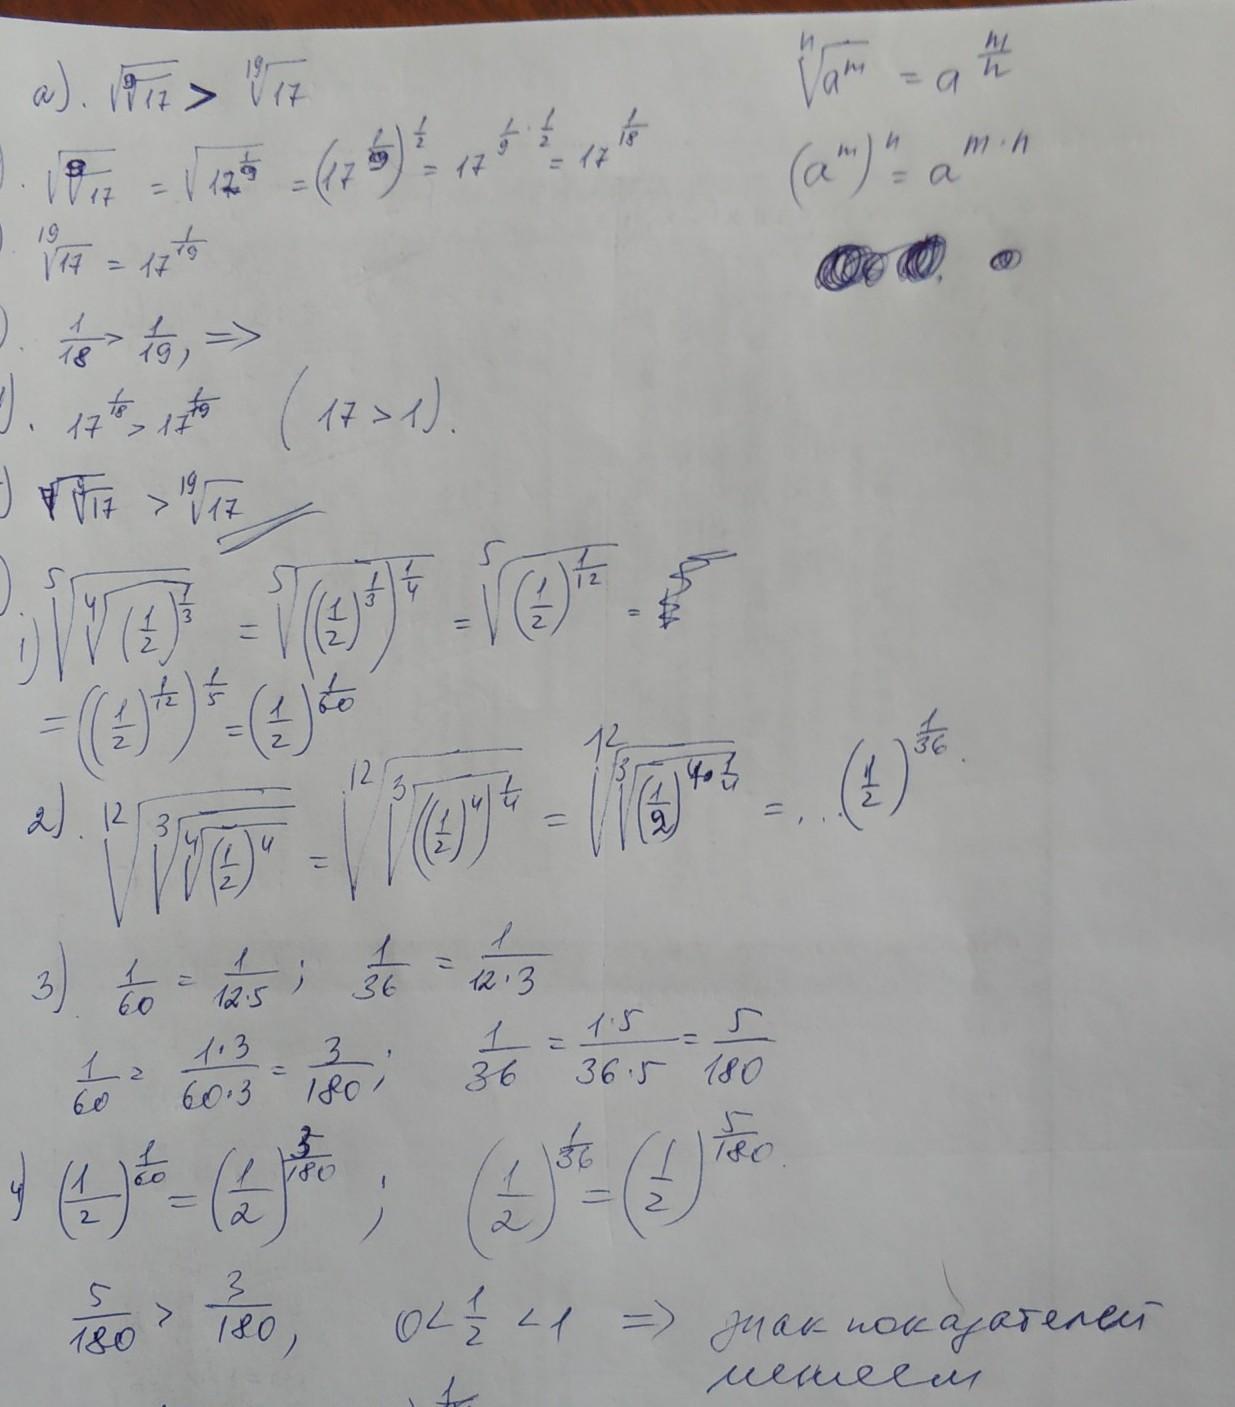 а). √(⁹√17) > ¹⁹√17
ⁿ√(a^m) = a^(m/n)
). √(⁹√17) = √(17^(1/9)) = (17^(1/9))^(1/2) = 17^(1/9 · 1/2) = 17^(1/18)
(a^m)^n = a^(m·n)
). ¹⁹√17 = 17^(1/19)
). 1/18 > 1/19, =>
). 17^(1/18) > 17^(1/19) (17 > 1).
) √(⁹√17) > ¹⁹√17
).
1) ⁵√(⁴√((1/2)^(1/3))) = ⁵√(((1/2)^(1/3))^(1/4)) = ⁵√((1/2)^(1/12)) =
= ((1/2)^(1/12))^(1/5) = (1/2)^(1/60)
2). ¹²√(³√(⁴√((1/2)^4))) = ¹²√(³√(((1/2)^4)^(1/4))) = ¹²√(³√((1/2)^(4·1/4))) = ... (1/2)^(1/36).
3) 1/60 = 1/(12·5); 1/36 = 1/(12·3)
1/60 = (1·3)/(60·3) = 3/180; 1/36 = (1·5)/(36·5) = 5/180
4) (1/2)^(1/60) = (1/2)^(3/180); (1/2)^(1/36) = (1/2)^(5/180).
5/180 > 3/180, 0 < 1/2 < 1 => знак показателей
меняем